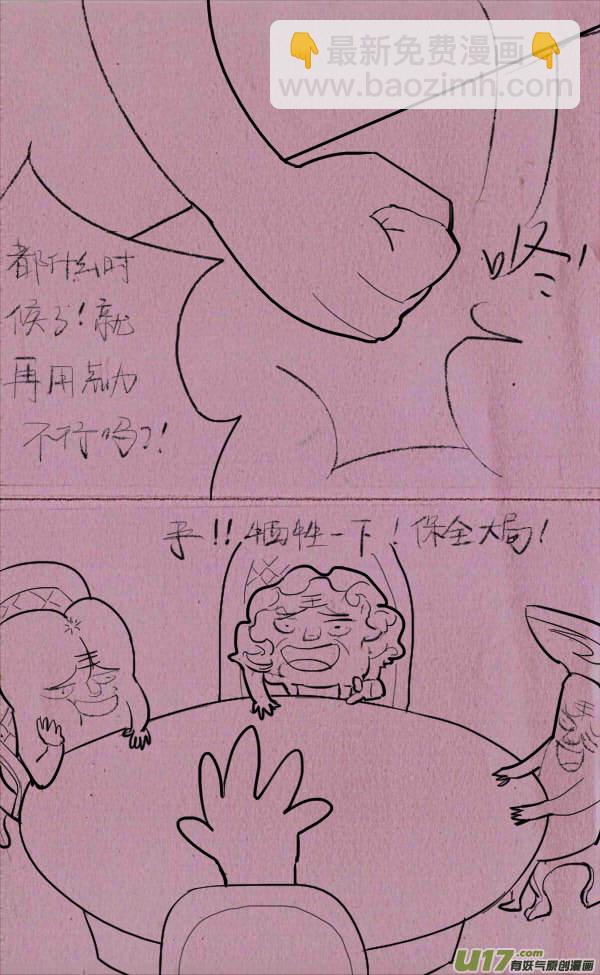 👇最新免费漫画👇
www.baozimh.com
咚!
都什么时
候了!就
再用点力
不行吗?!
手!!牺牲一下!保全大局!
U17.com
有妖气原创漫画